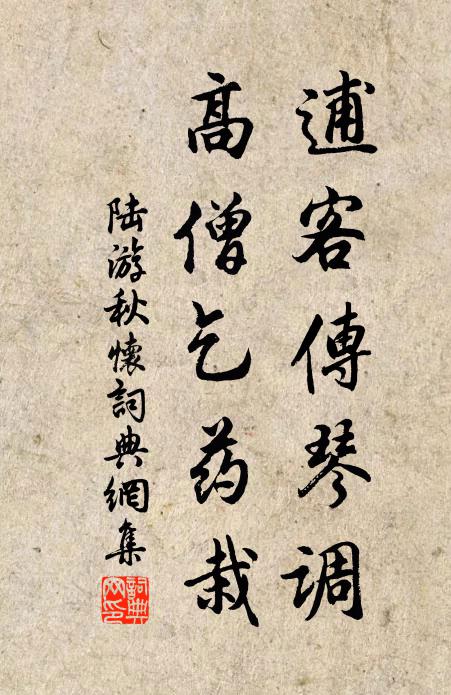 逋客傳琴调
高僧乞药栽
陆游秋懷詞典網集
詞典网印